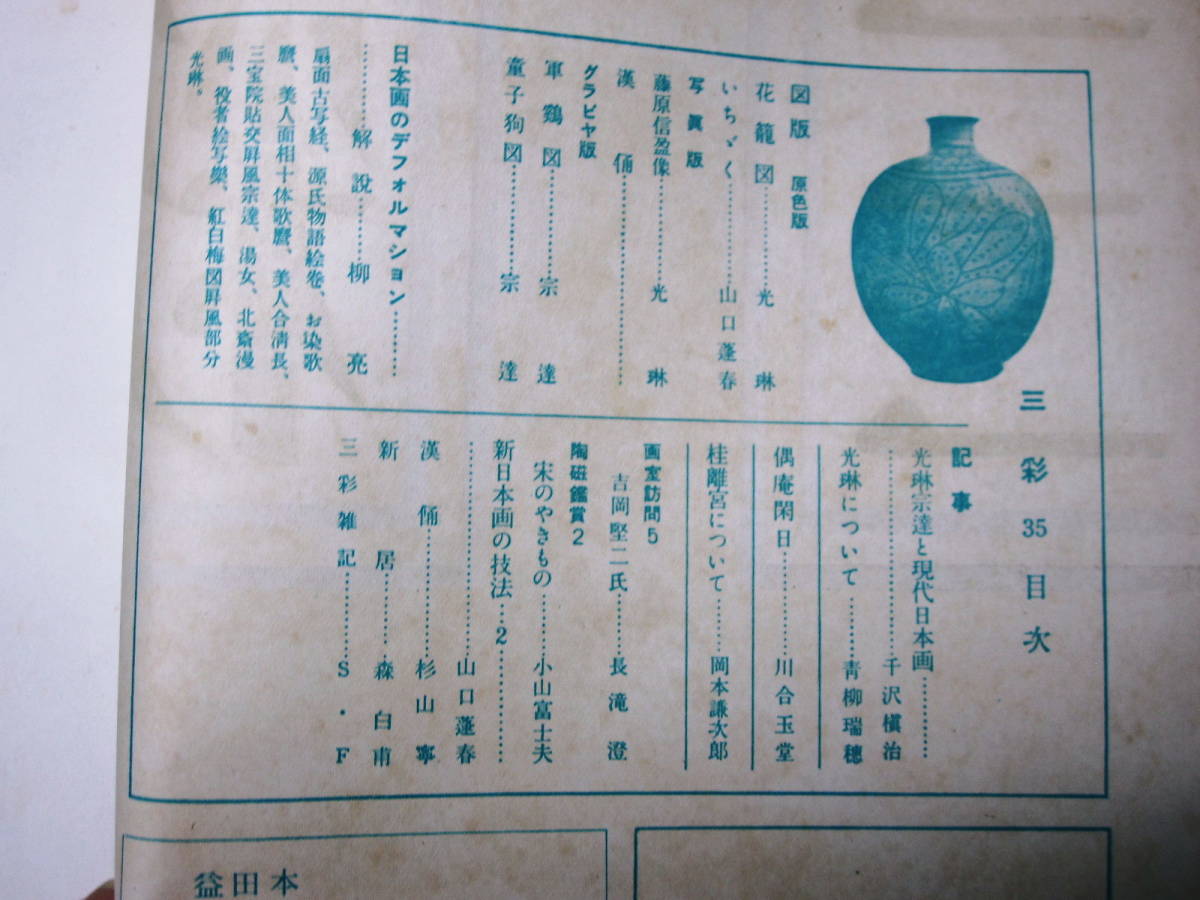 三彩 35 目次
図版 原色版
花籠図…………光琳
いちゞく…………山口蓬春
写真版
藤原信盈像…………光琳
漢俑…………
グラビヤ版
軍鶏図…………宗達
童子狗図…………宗達
日本画のデフォルマション…………
…………解説……柳亮
扇面古写経、源氏物語絵巻、お染歌
麿、美人面相十体歌麿、美人合清長、
三宝院貼交屏風宗達、湯女、北斎漫
画、役者絵写楽、紅白梅図屏風部分
光琳。
記事
光琳宗達と現代日本画…………
…………千沢楨治
光琳について…………青柳瑞穂
偶庵閑日…………川合玉堂
桂離宮について…………岡本謙次郎
画室訪問5
吉岡堅二氏…………長滝澄
陶磁鑑賞2
宋のやきもの…………小山富士夫
新日本画の技法…2…………
…………山口蓬春
漢俑…………杉山寧
新居…………森白甫
三彩雑記…………S・F
益田本